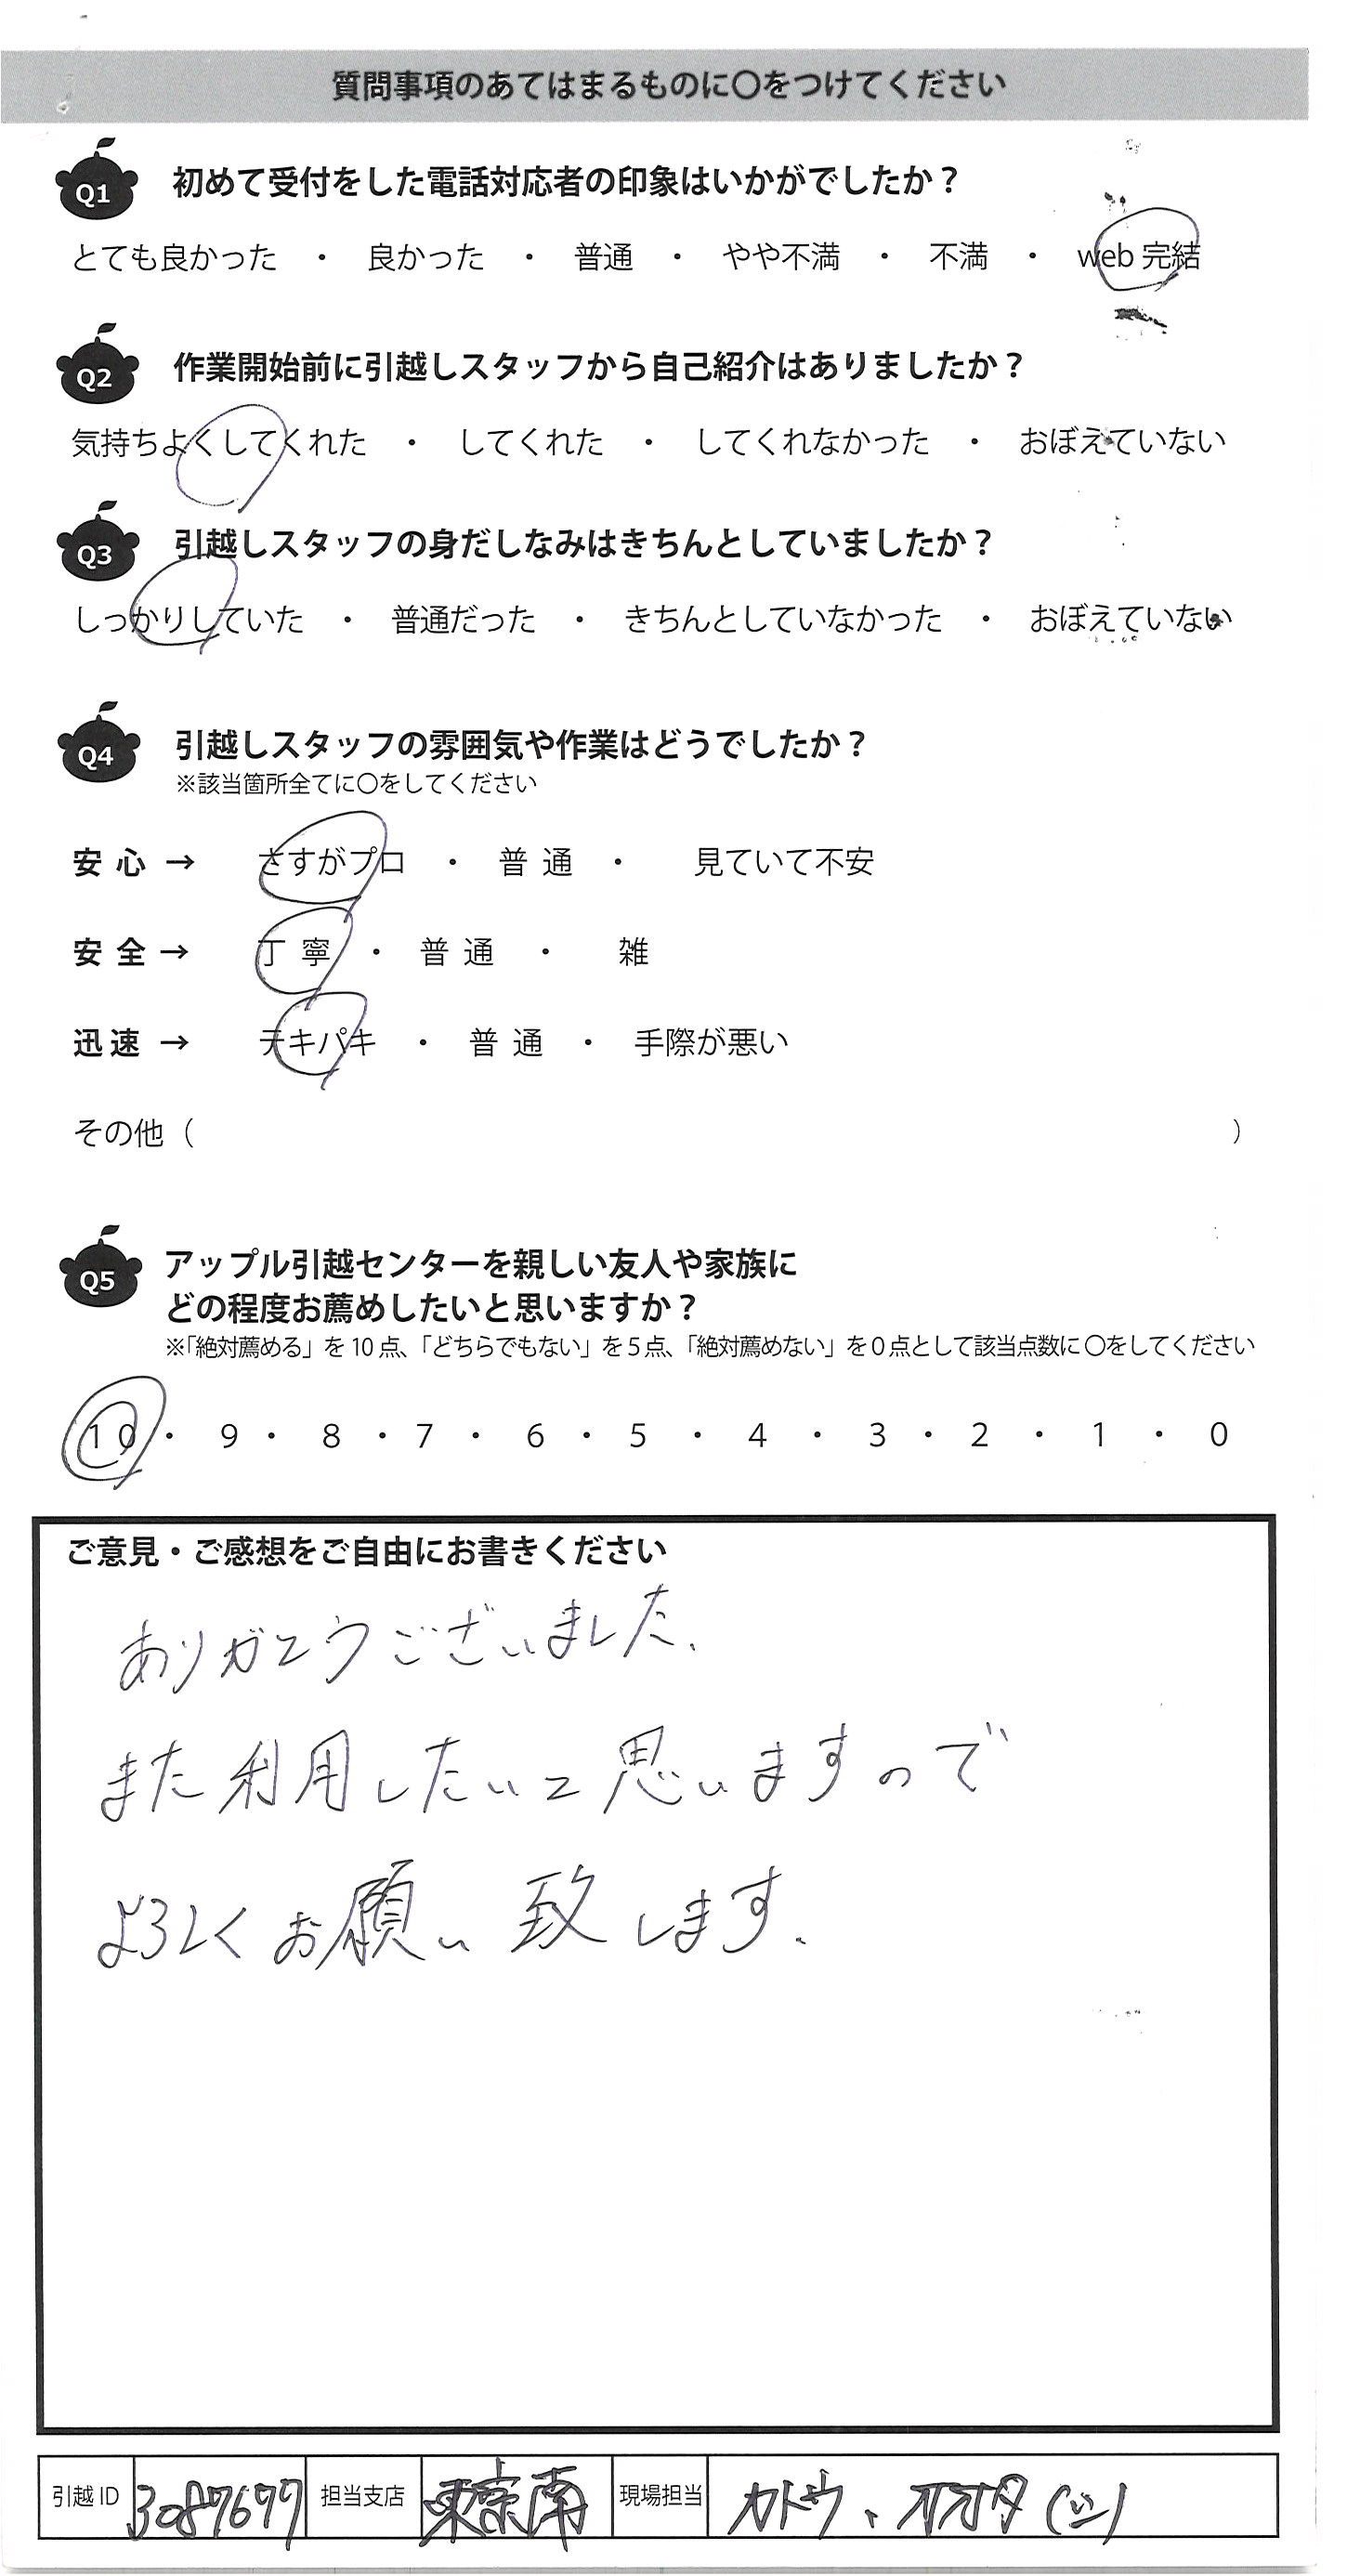 質問事項のあてはまるものに〇をつけてください
Q1 初めて受付をした電話対応者の印象はいかがでしたか？
とても良かった ・ 良かった ・ 普通 ・ やや不満 ・ 不満 ・ web 完結
Q2 作業開始前に引越しスタッフから自己紹介はありましたか？
気持ちよくしてくれた ・ してくれた ・ してくれなかった ・ おぼえていない
Q3 引越しスタッフの身だしなみはきちんとしていましたか？
しっかりしていた ・ 普通だった ・ きちんとしていなかった ・ おぼえていない
Q4 引越しスタッフの雰囲気や作業はどうでしたか？
※該当箇所全てに〇をしてください
安 心 → さすがプロ ・ 普 通 ・ 見ていて不安
安 全 → 丁 寧 ・ 普 通 ・ 雑
迅 速 → テキパキ ・ 普 通 ・ 手際が悪い
その他（ ）
Q5 アップル引越センターを親しい友人や家族に
どの程度お薦めしたいと思いますか？
※「絶対薦める」を 10 点、「どちらでもない」を 5 点、「絶対薦めない」を 0 点として該当点数に 〇をしてください
10 ・ 9 ・ 8 ・ 7 ・ 6 ・ 5 ・ 4 ・ 3 ・ 2 ・ 1 ・ 0
ご意見・ご感想をご自由にお書きください
ありがとうございました、
また利用したいと思いますので
よろしくお願い致します、
引越 ID 3087677 担当支店 東京南 現場担当 カトウ、オオタ